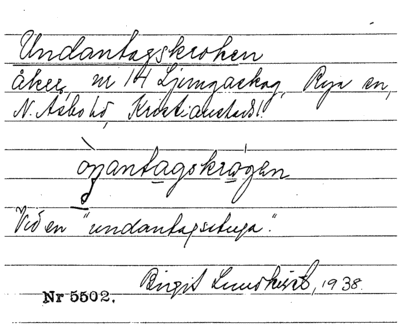 Undantagskroken
åker, nr 14 Ljungaskog, Rya sn,
N. Åsbo hd, Kristianstads l.
òŋantagskrogen
Vid en "undantagsstuga".
Birgit Lundkvist, 1938.
Nr 5502.